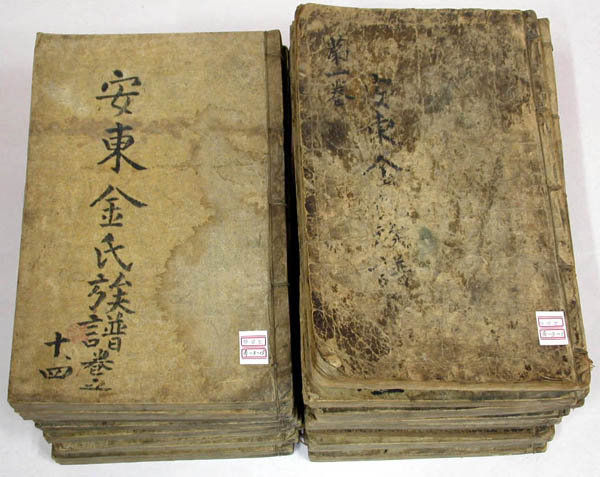 安東金氏族譜卷之
十四
第一卷
安東金氏族譜